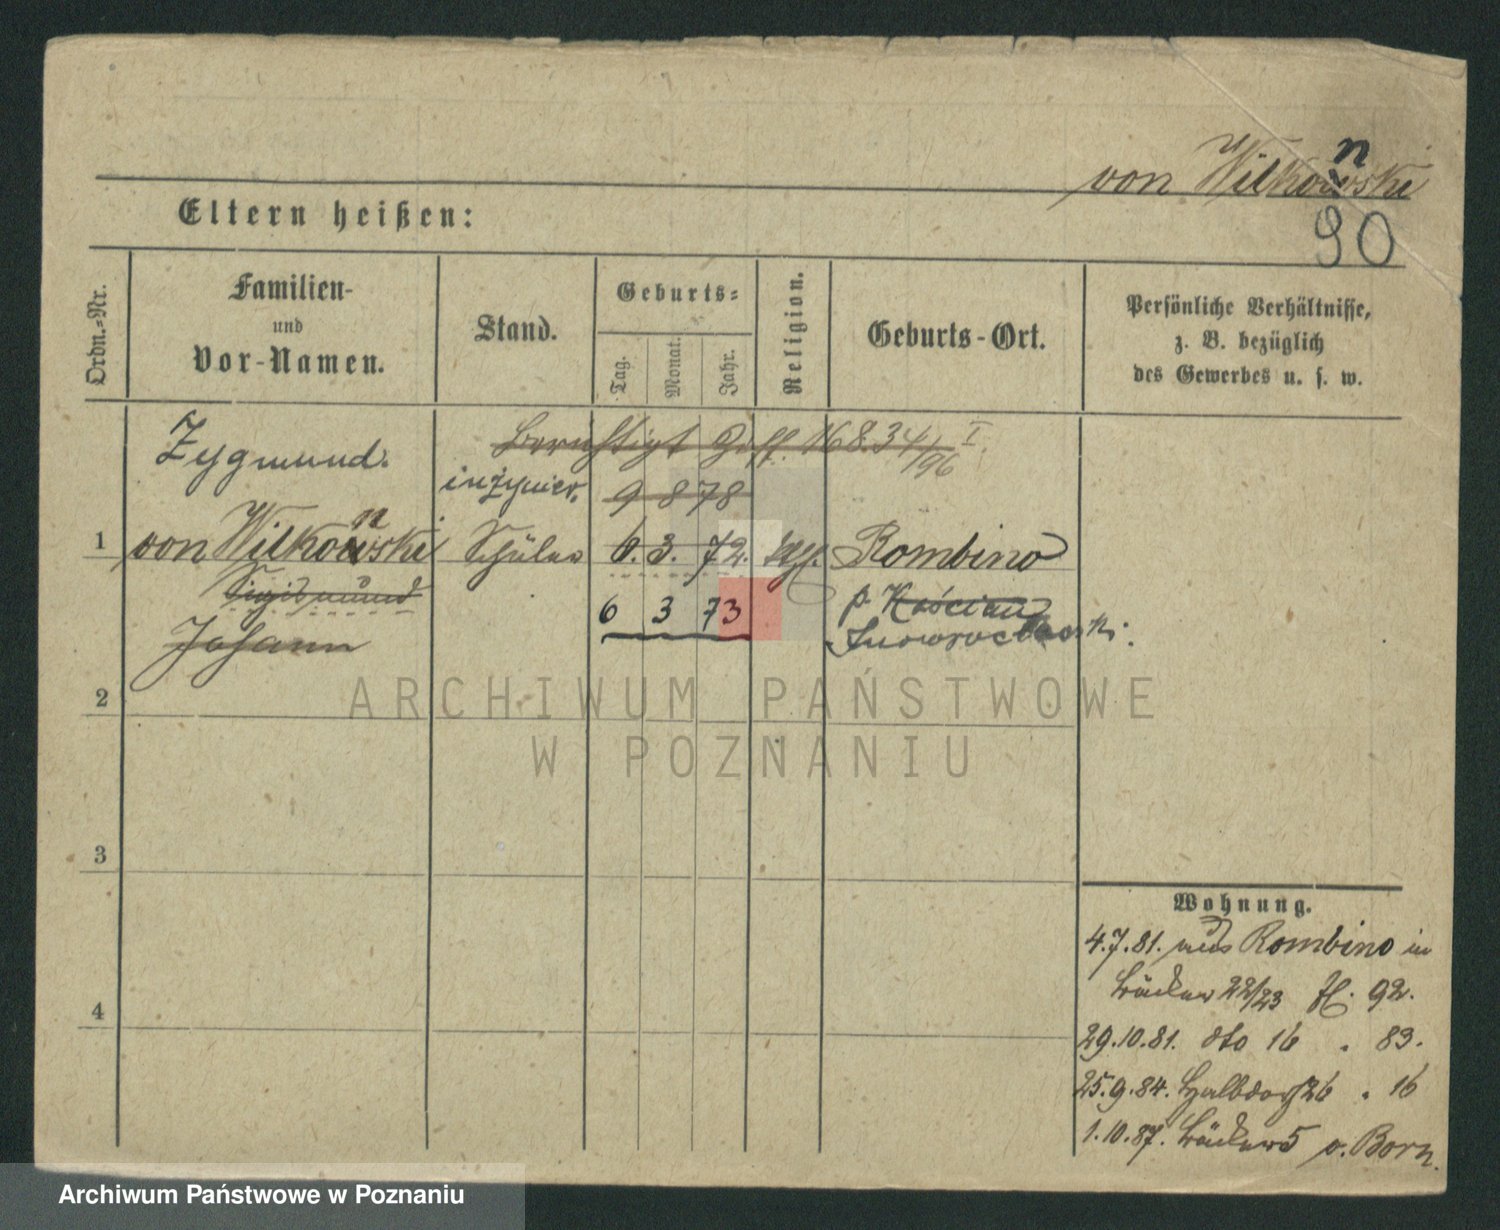 von Wilkonski
90
Eltern heißen:
Ordn.-Nr.
Familien-
und
Vor-Namen.
Stand.
Geburts-
Tag.
Monat.
Jahr.
Religion.
Geburts-Ort.
Persönliche Verhältnisse,
z. B. bezüglich
des Gewerbes u. s. w.
Berichtigt 16834/96 I.
Zygmund.
inżynier.
9 8 78
1 von Wilkonski Schüler 6. 3. 72. Rombino
Sigismund
6 3 73
p. Kościan
Johann
Inowrocławski.
2
3
4
Wohnung.
4.7.81. aus Rombino in
Bäcker 22/23 92.
29.10.81. dto 16 . 83.
25.9.84. Halbdorf 26 . 16
1.10.87. Bäcker 5 v. Born.
ARCHIWUM PAŃSTWOWE
W POZNANIU
Archiwum Państwowe w Poznaniu